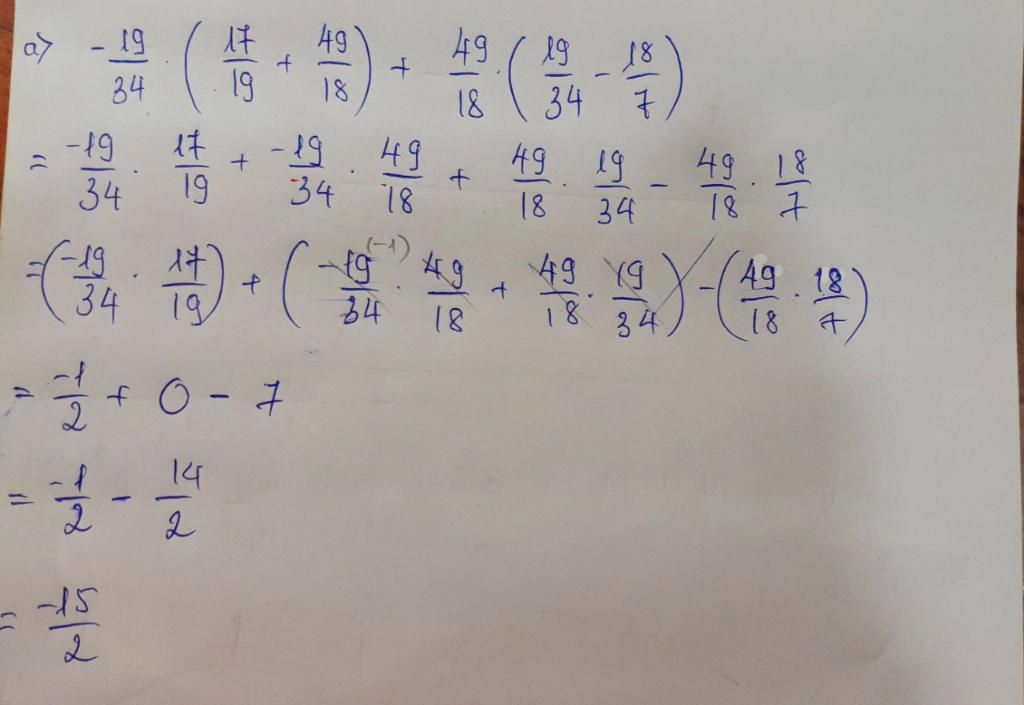 a) -19/34 · (17/19 + 49/18) + 49/18 · (19/34 - 18/7)
= -19/34 · 17/19 + -19/34 · 49/18 + 49/18 · 19/34 - 49/18 · 18/7
= (-19/34 · 17/19) + (-19/34 (-1) · 49/18 + 49/18 · 19/34) - (49/18 · 18/7)
= -1/2 + 0 - 7
= -1/2 - 14/2
= -15/2